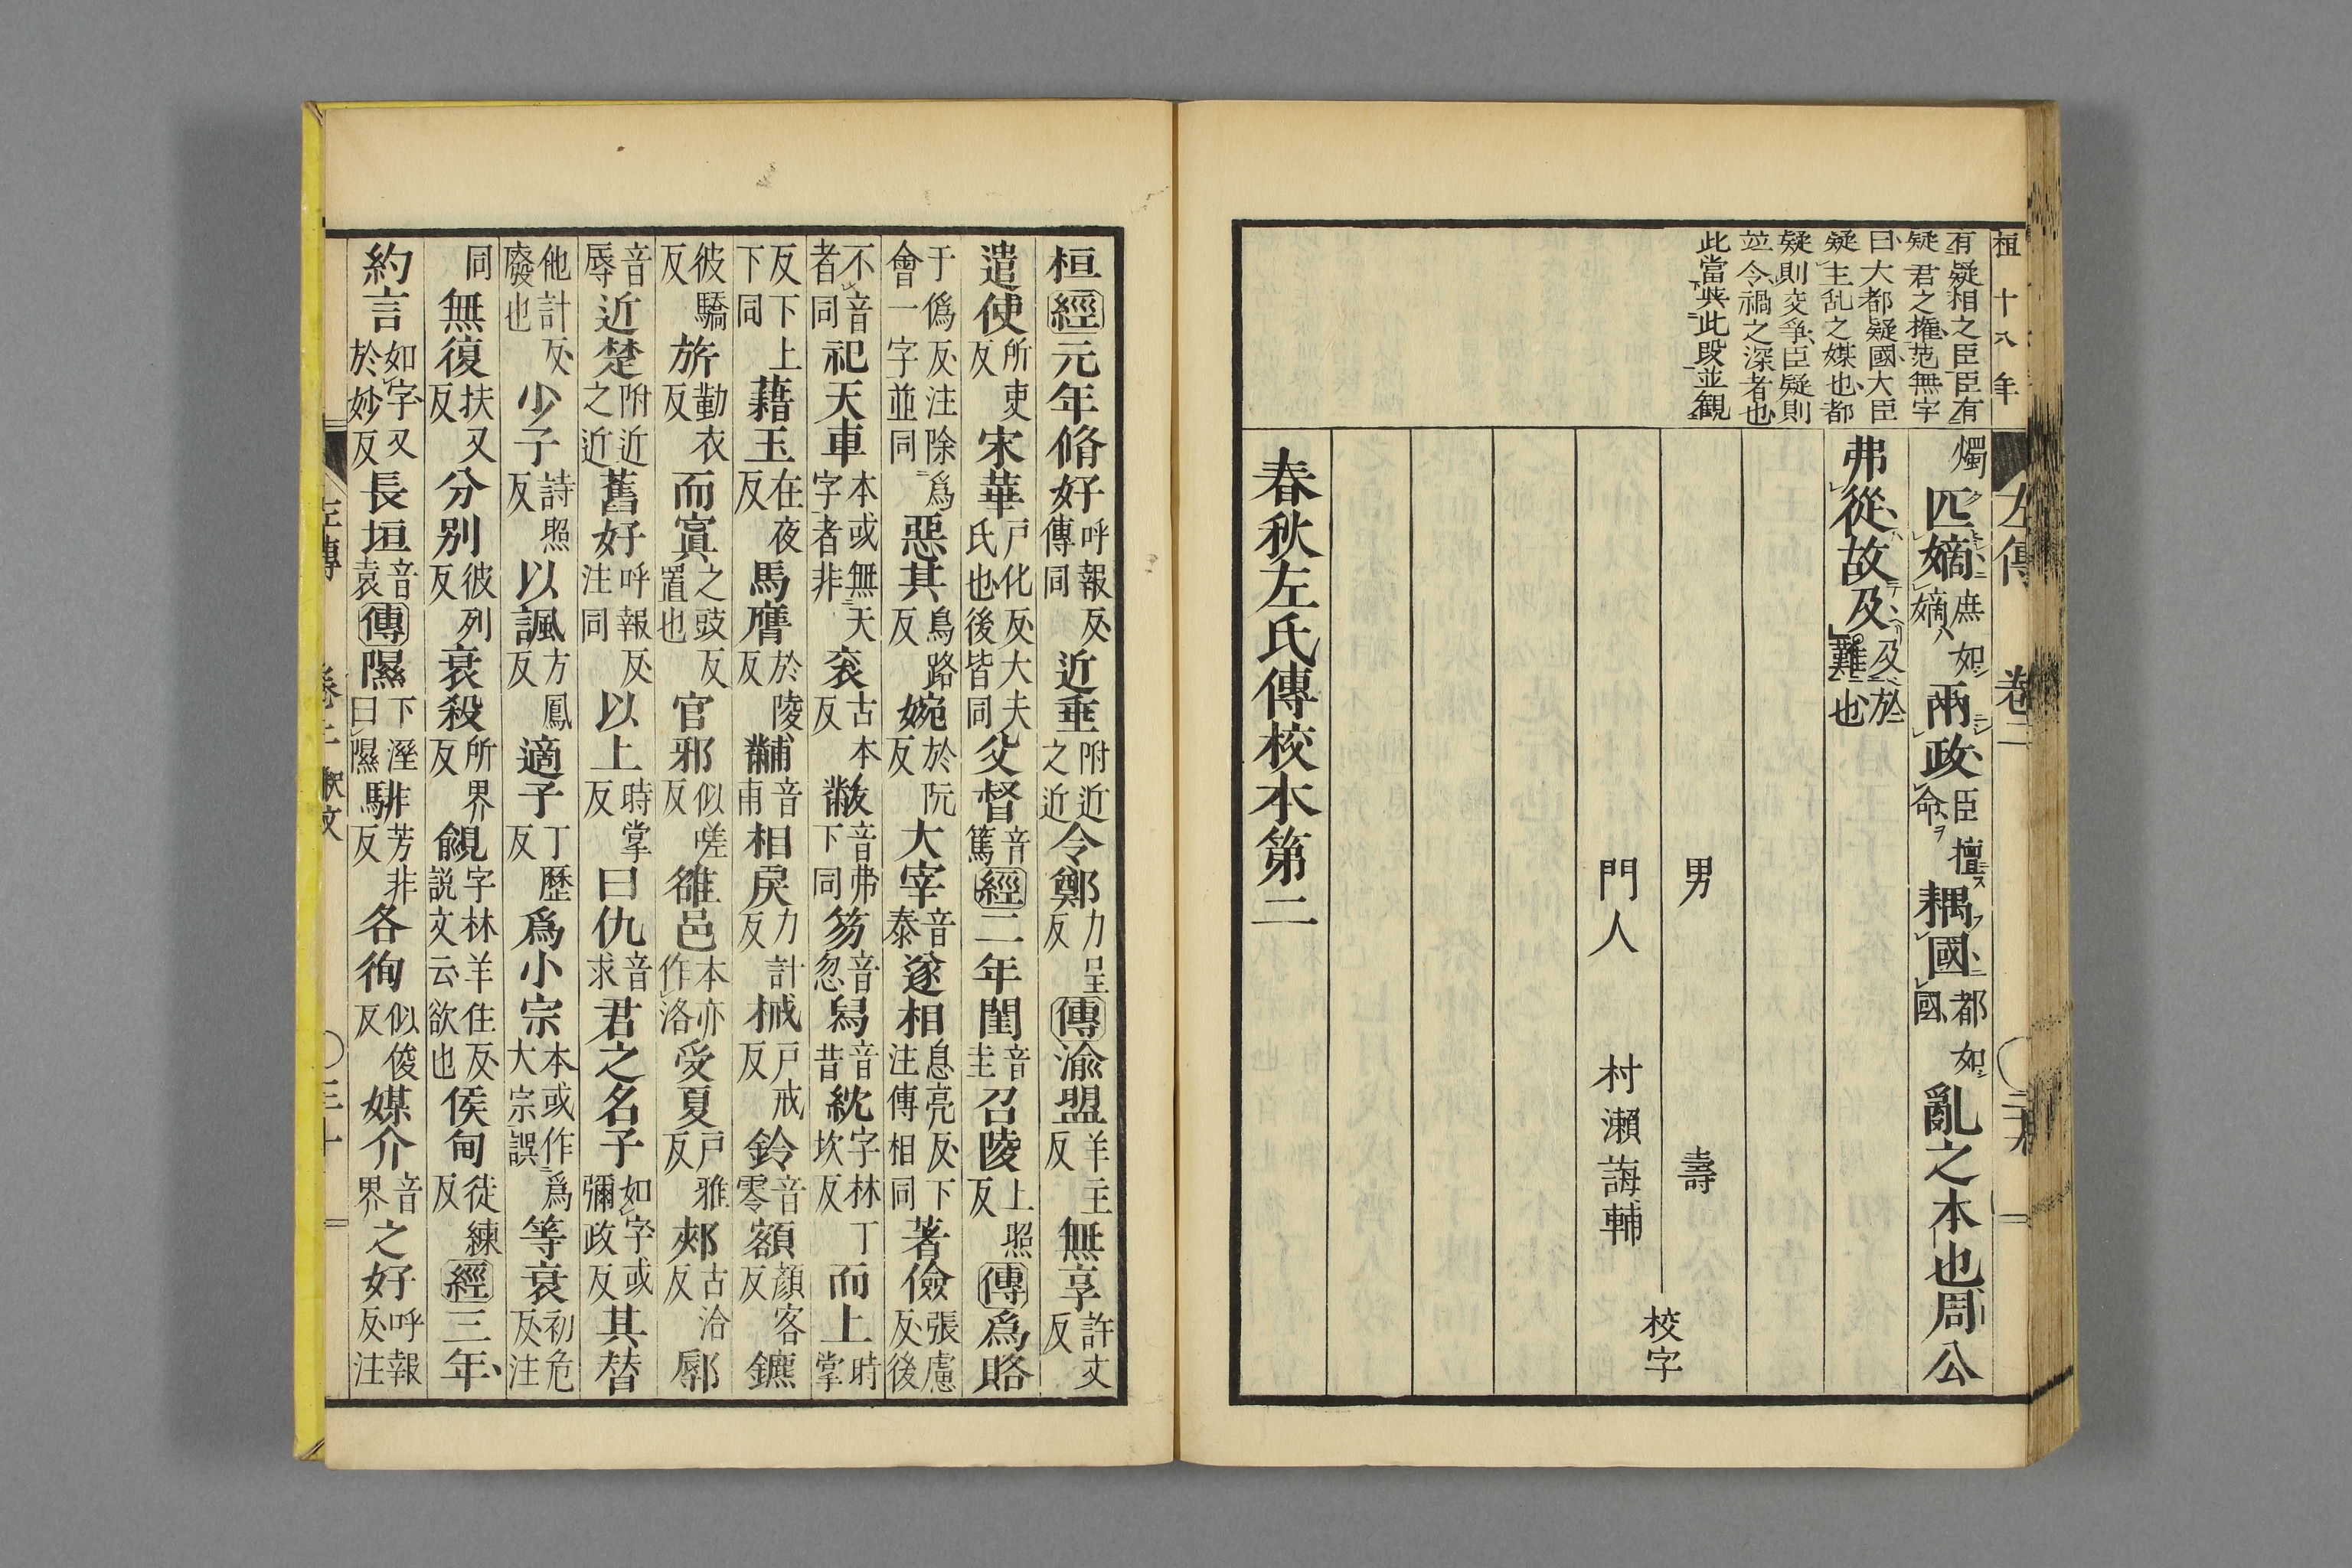 桓十八年
左傳 卷二
有疑相之臣臣有
疑君之權范無字
曰大都疑國大臣
疑主乱之媒也都
疑則交爭臣疑則
並令禍之深者也
此當與此段並観
燭匹嫡庶如嫡兩政臣擅命耦國都如國亂之本也周公
弗從故及及於難也
男 壽
門人 村瀬誨輔
校字
春秋左氏傳校本第二
桓經元年脩好呼報反傳同近垂附近之近令鄭力呈反傳渝盟羊主反無享許丈反
遣使所吏反宋華戶化反大夫氏也後皆同父督音篤經二年閨音圭召陵上照反傳爲賂
于僞反注除爲會一字並同惡其烏路反婉於阮反大宰音泰遂相息亮反下注傳相同著儉張慮反後
不音者同祀天車本或無天字者非袞古本反黻音弗下同笏音忽舄音昔紞字林丁坎反而上時掌
反下上下同藉玉在夜反馬膺於陵反黼音甫相戾力計反械戶戒反鈴音零額顏客反鑣
彼驕反旂勤衣反而寘之豉反置也官邪似嗟反雒邑本亦作洛受夏戶雅反郟古洽反鄏
音辱近楚附近之近舊好呼報反注同以上時掌反曰仇音求君之名子如字或彌政反其替
他計反廢也少子詩照反以諷方鳳反適子丁歷反爲小宗本或作爲大宗誤等衰初危反注
同無復扶又反分別彼列反衰殺所界反覦字林羊住反說文云欲也侯甸徒練反經三年
約言如字又於妙反長垣音袁傳隰下溼曰隰騑芳非反各徇似俊反媒介音界之好呼報反注
左傳 卷二 釈文 三十